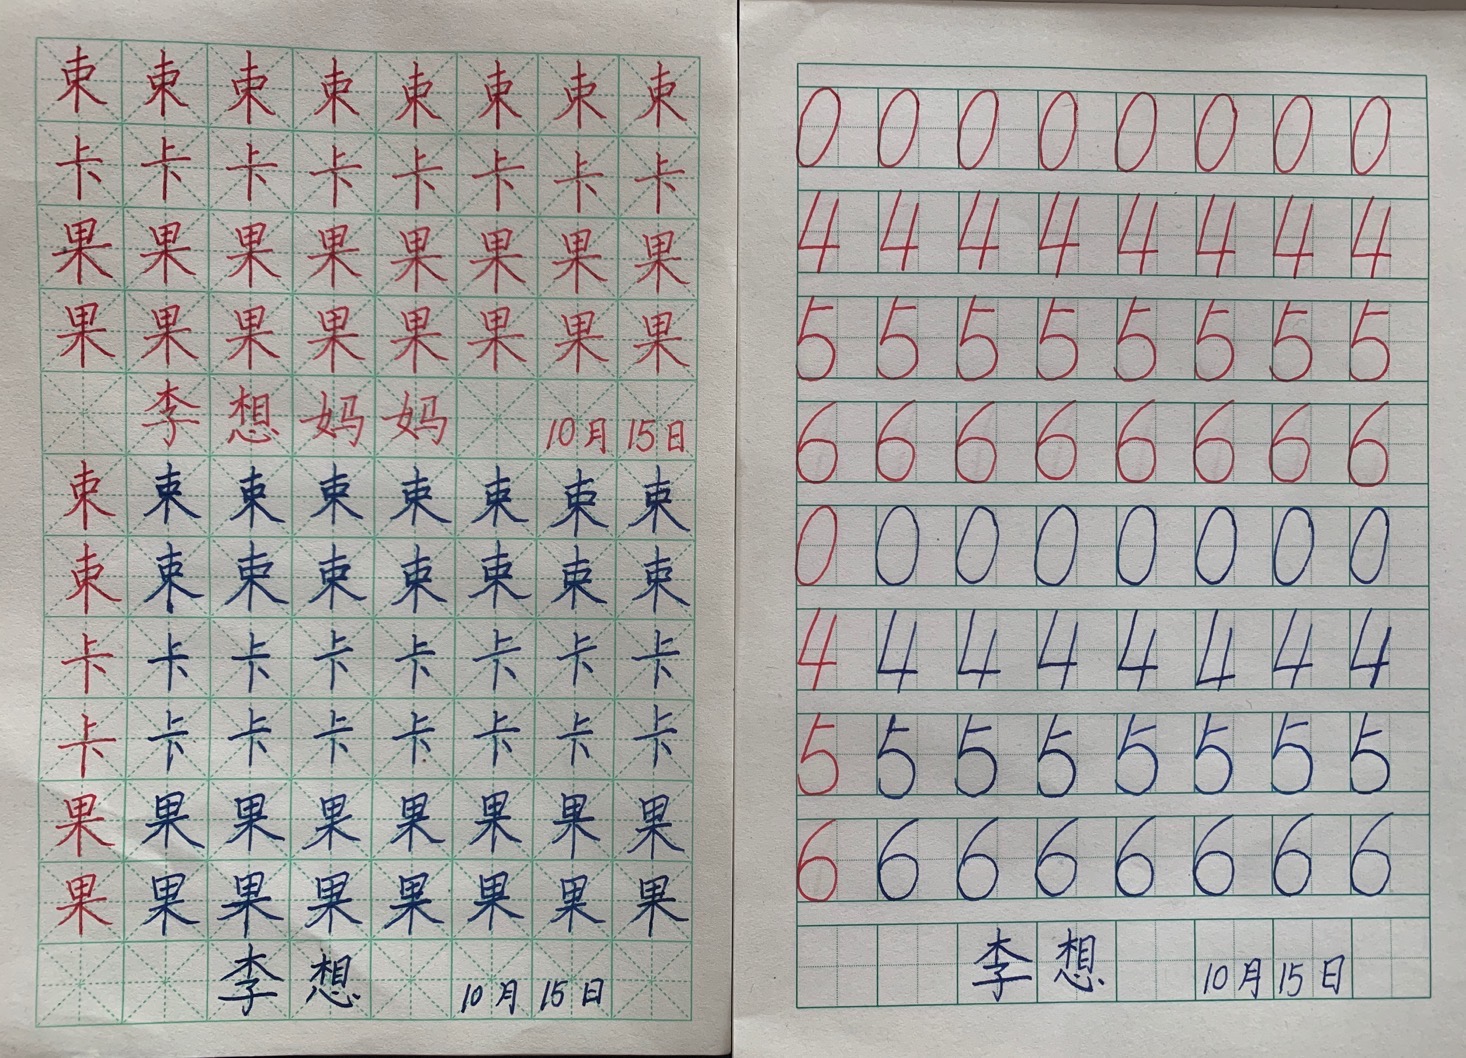 束 束 束 束 束 束 束 束
卡 卡 卡 卡 卡 卡 卡 卡
果 果 果 果 果 果 果 果
果 果 果 果 果 果 果 果
李 想 妈 妈 10月 15日
束 束 束 束 束 束 束 束
束 束 束 束 束 束 束 束
卡 卡 卡 卡 卡 卡 卡 卡
卡 卡 卡 卡 卡 卡 卡 卡
果 果 果 果 果 果 果 果
果 果 果 果 果 果 果 果
李 想 10月 15日
0 0 0 0 0 0 0 0
4 4 4 4 4 4 4 4
5 5 5 5 5 5 5 5
6 6 6 6 6 6 6 6
0 0 0 0 0 0 0 0
4 4 4 4 4 4 4 4
5 5 5 5 5 5 5 5
6 6 6 6 6 6 6 6
李 想 10月 15日